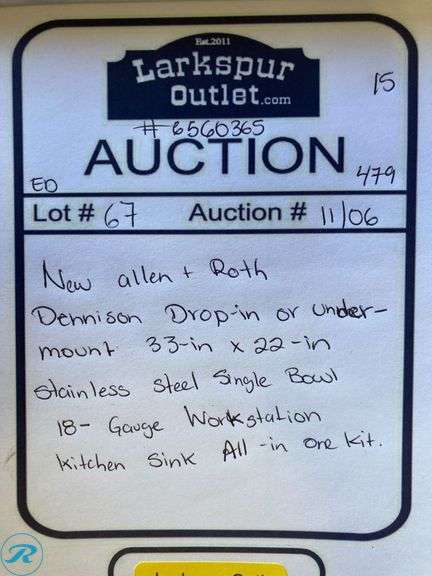 Est. 2011
Larkspur
Outlet.com
15
#6560365
AUCTION
ED
479
Lot # 67 Auction # 11/06
New allen + Roth
Dennison Drop-in or under-
mount 33-in x 22-in
stainless steel Single Bowl
18- Gauge Workstation
kitchen Sink All-in one kit.
R